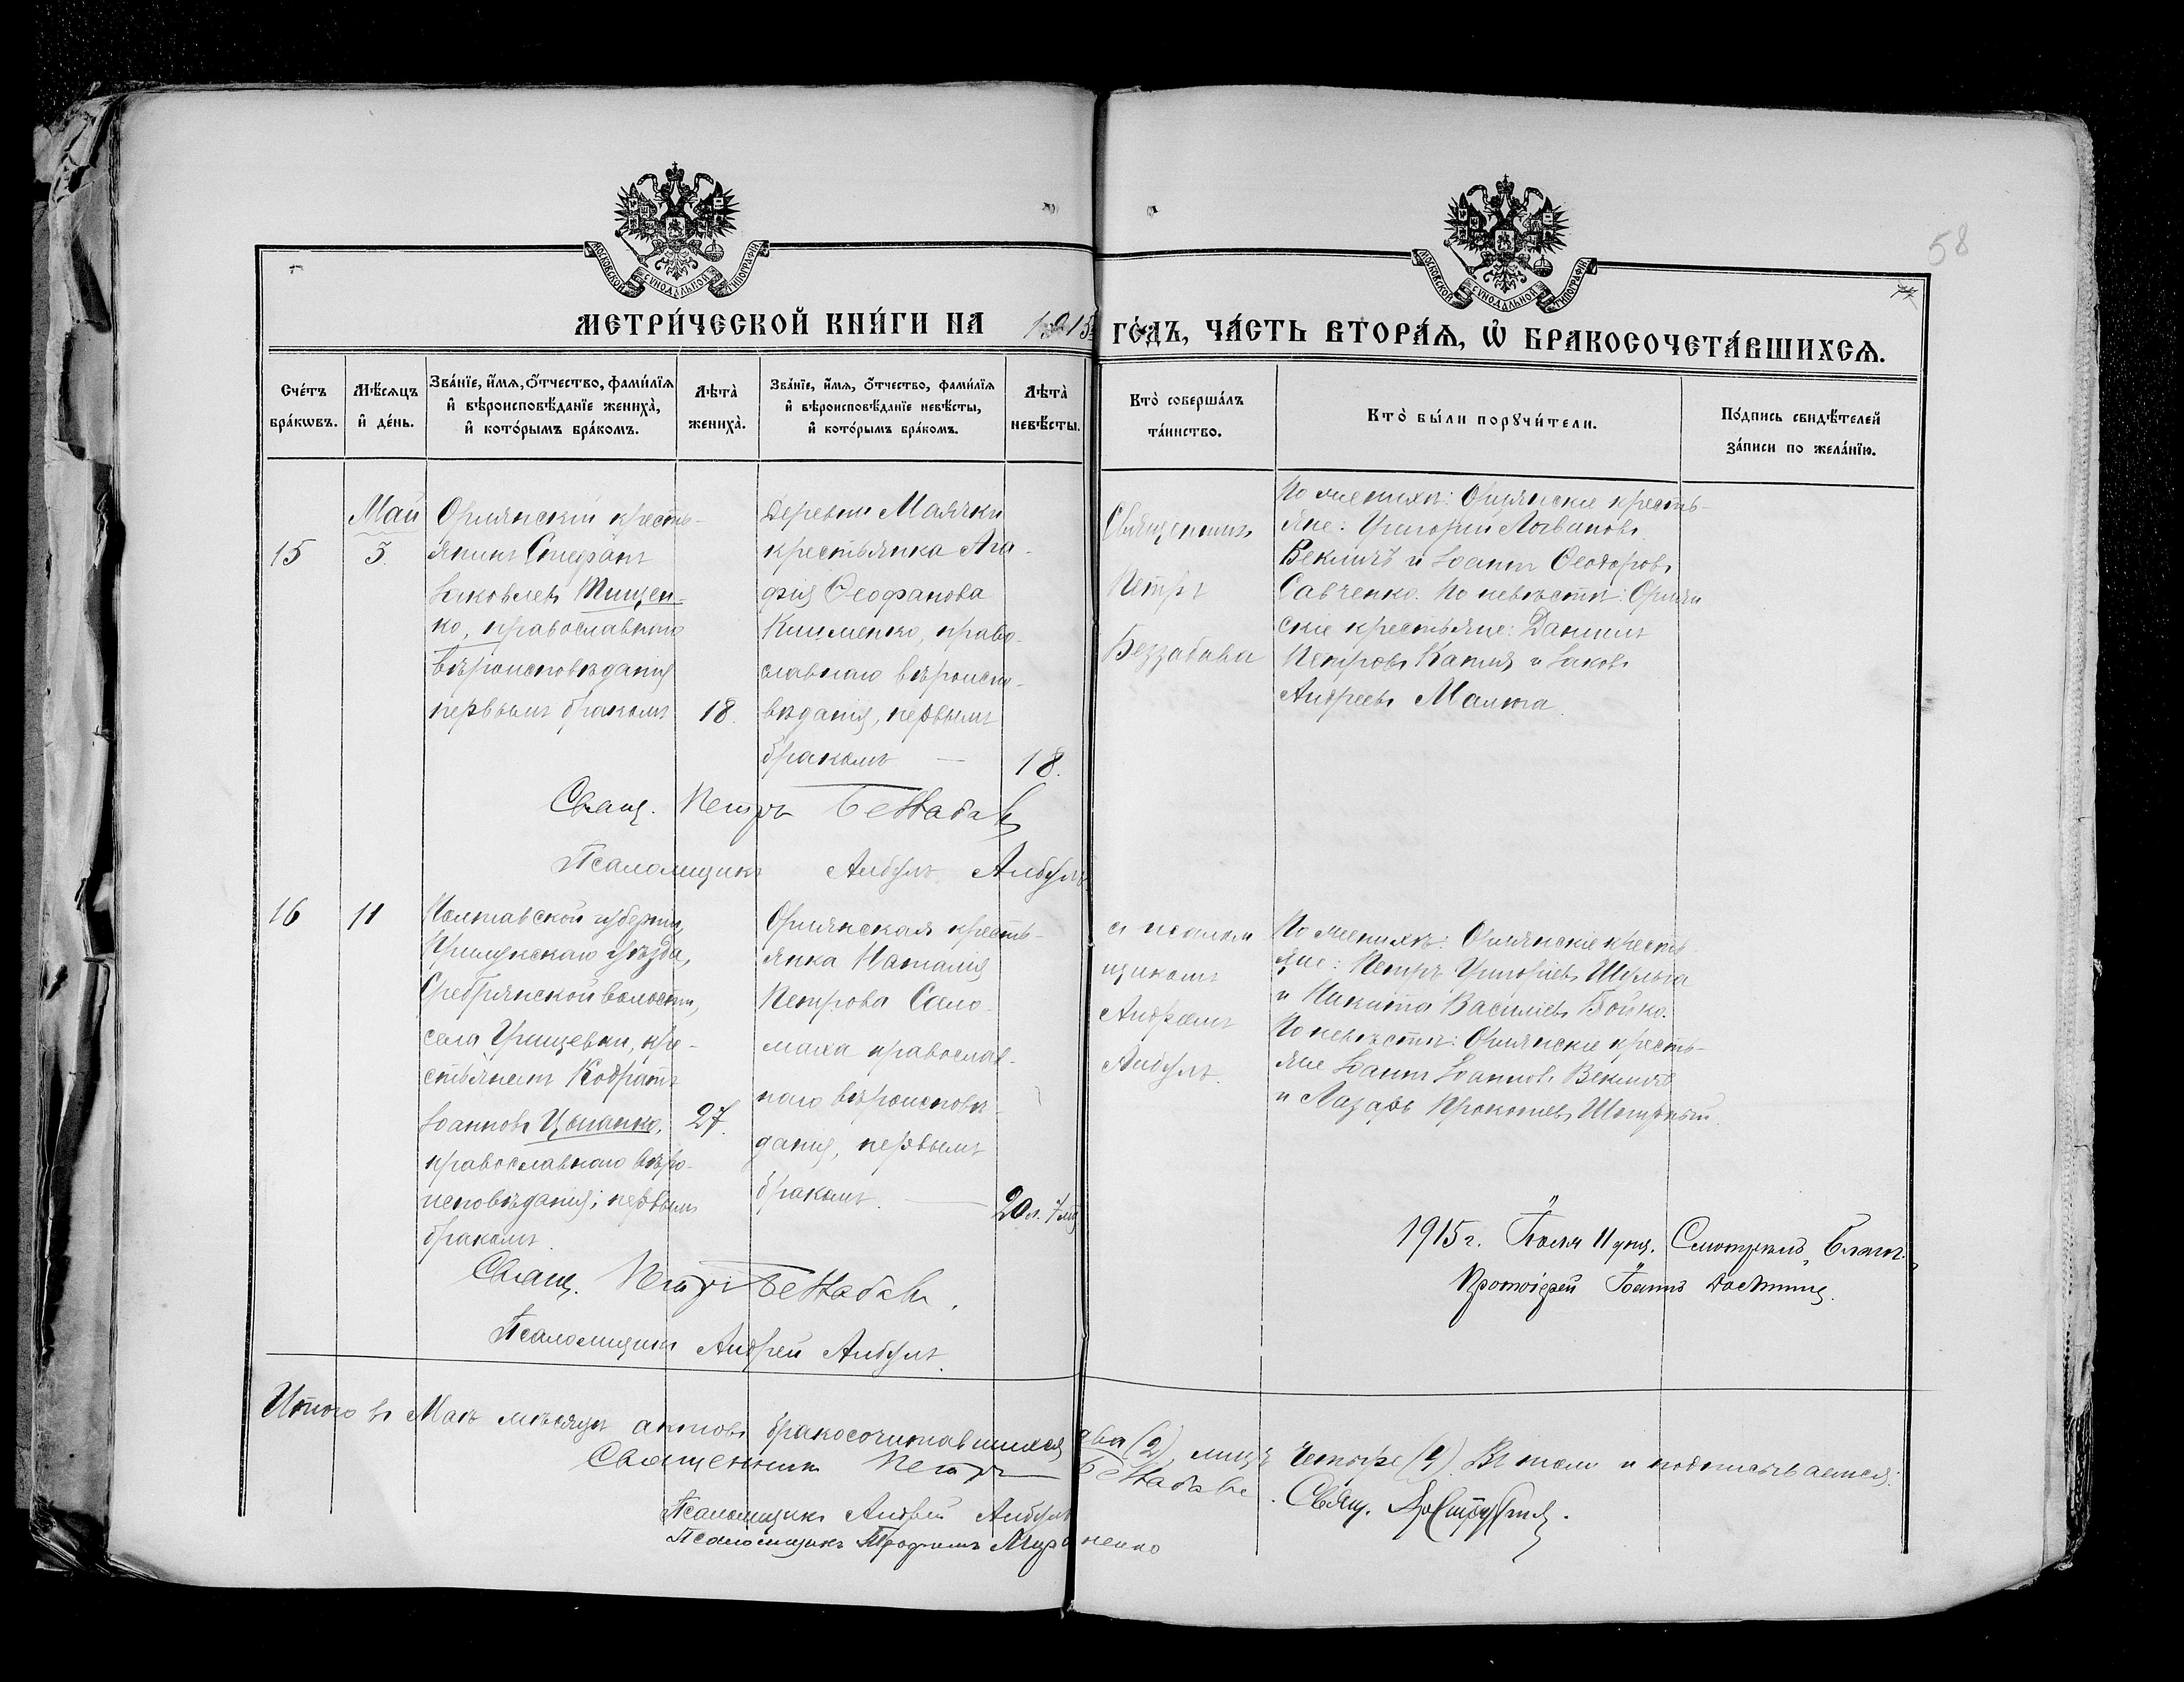 58
МОСКОВСКОЙ СУНОДАЛЬНОЙ ТИПОГРАФІИ
МОСКОВСКОЙ СУНОДАЛЬНОЙ ТИПОГРАФІИ
МЕТРИ́ЧЕСКОЙ КНИ́ГИ НА 1915 ГО́ДЪ, ЧА́СТЬ ВТОРА́Ѧ, Ѡ҆ БРАКОСОЧЕТА́ВШИХСѦ.
Сче́тъ
бра́кѡвъ.
Мѣ́сѧцъ
и҆ де́нь.
Зва́нїе, и҆́мѧ, ѻ҆́тчество, фами́лїѧ
и҆ вѣроисповѣ́данїе жениха̀,
и҆ кото́рымъ бра́комъ.
Лѣта̀
жениха̀.
Зва́нїе, и҆́мѧ, ѻ҆́тчество, фами́лїѧ
и҆ вѣроисповѣ́данїе невѣ́сты,
и҆ кото́рымъ бра́комъ.
Лѣта̀
невѣ́сты.
Кто̀ соверша́лъ
та́инство.
Кто̀ бы́ли порꙋчи́тели.
По́дпись свидѣ́телей
за́писи по жела́нїю.
15
Май
3.
Орлянскій кресть-
янинъ Стефанъ
Іаковлевъ Тищен-
ко, православнаго
вѣроисповѣданія
первымъ бракомъ
18.
Деревни Маячки
крестьянка Ага-
фія Ѳеофанова
Клименко, право-
славнаго вѣроиспо-
вѣданія, первымъ
бракомъ —
18.
Священникъ
Петръ
Беззабава
По женихѣ: Орлянскіе кресть-
яне: Григорій Логвиновъ
Векличъ и Іоаннъ Ѳеодоровъ
Савченко. По невѣстѣ: Орлян
скіе крестьяне: Даниилъ
Петровъ Капля и Іаковъ
Андреевъ Малюга.
Свящ. Петръ Беззабава
Псаломщикъ Андрей
16
11
Полтавской губерніи,
Прилукскаго уѣзда,
Сребрянской волости,
села Грицевки, кре-
стьянинъ Кодратъ
Іоанновъ
27.
православнаго вѣро-
исповѣданія, первымъ
бракомъ.
Орлянская кресть-
янка Наталія
Петрова Сало-
маха православ-
наго вѣроисповѣ-
данія, первымъ
бракомъ. —
20 л. 7 мѣс
съ псалом
щикомъ
Андреемъ
По женихѣ: Орлянскіе кресть
яне: Петръ Григоріевъ Шульга
и Никита Василіевъ Бойко.
По невѣстѣ: Орлянскіе кресть-
яне Іоаннъ Іоанновъ Векличъ
и Лазарь Прокопіевъ
Свящ. Петръ Беззабава.
Псаломщикъ Андрей
1915 г. Іюля 11 дня. Смотрѣлъ, Благоч.
Протоіерей Іоаннъ
Итого въ Маѣ мѣсяцѣ актовъ бракосочитавшихся два (2), лицъ четыре (4). Въ томъ и подписываемся:
Священникъ Петръ Беззабава. Свящ.
Псаломщикъ Андрей
Псаломщикъ Трофимъ Мироненко